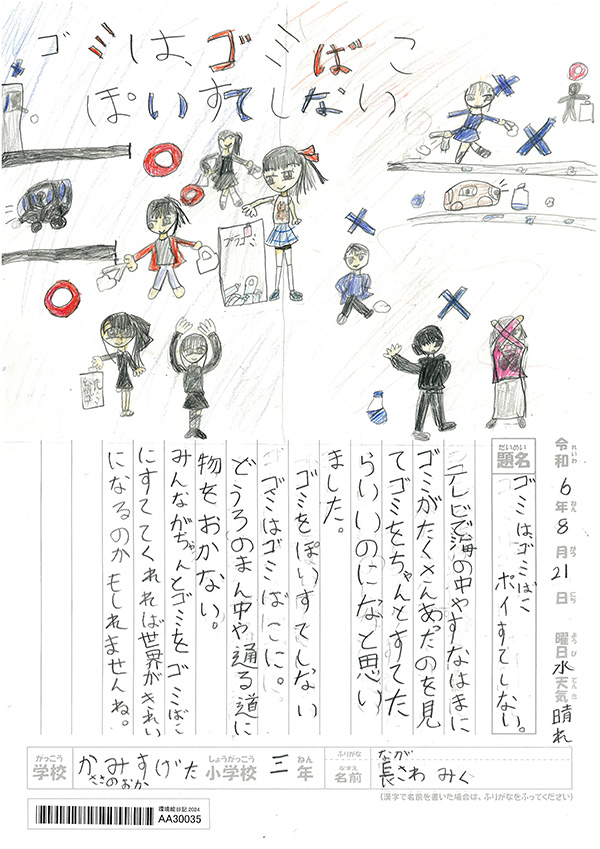 ゴミは、ゴミばこ
ぽいすてしない。
プラゴミ
令和6年8月21日 曜日水 天気晴れ
れいわ ねん がつ にち ようび てんき
だいめい
題名
ゴミは、ゴミばこ
ポイすてしない。
テレビで海の中やすなはまに
ゴミがたくさんあったのを見
てゴミをちゃんとすてた
らいいのになと思い
ました。
ゴミをぽいすてしない
ゴミはゴミばこに。
どうろのまん中や通る道に
物をおかない。
みんながちゃんとゴミをゴミばこ
にすててくれれば世界がきれい
になるのかもしれませんね。
がっこう
学校
かみすげた
ささのおか
しょうがっこう
小学校
三
ねん
年
ふりがな
なが
なまえ
名前
長さわ みく
(漢字で名前を書いた場合は、ふりがなをふってください)
環境絵日記 2024
AA30035